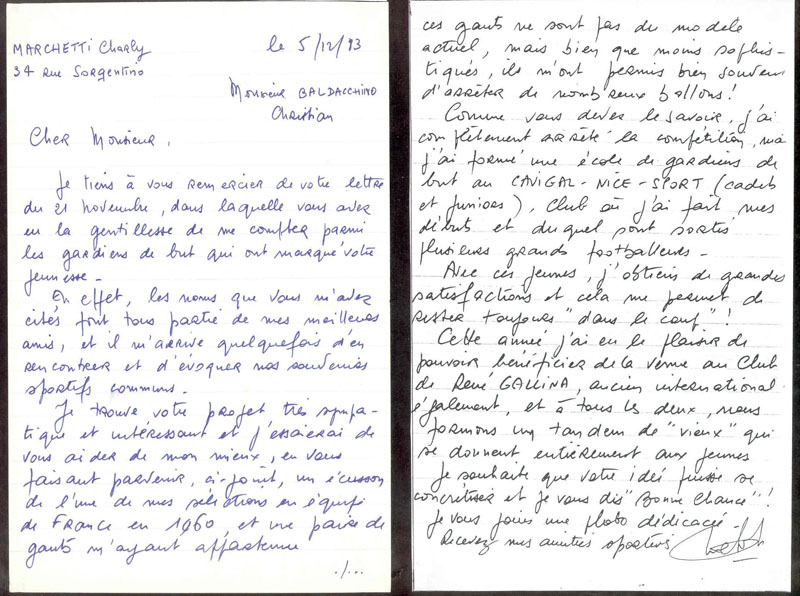 MARCHETTI Charly
34 Rue Sorgentino
le 5/12/93
Monsieur BALDACCHINO
Christian
Cher Monsieur,
Je tiens à vous remercier de votre lettre
du 21 novembre, dans laquelle vous avez
eu la gentillesse de me compter parmi
les gardiens de but qui ont marqué votre
jeunesse -
En effet, les noms que vous m'avez
cités font tous partie de mes meilleurs
amis, et il m'arrive quelquefois d'en
rencontrer et d'évoquer nos souvenirs
sportifs communs.
Je trouve votre projet très sympa-
tique et intéressant et j'essaierai de
vous aider de mon mieux, en vous
faisant parvenir, ci-joint, un écusson
de l'une de mes sélections en équipe
de France en 1960, et une paire de
gants m'ayant appartenue
./...
ces gants ne sont pas de modèle
actuel, mais bien que moins sophis-
tiqués, ils m'ont permis bien souvent
d'arrêter de nombreux ballons !
Comme vous devez le savoir, j'ai
complètement arrêté la compétition, mais
j'ai formé une école de gardiens de
but au CAVIGAL-NICE-SPORT (cadets
et juniors), Club où j'ai fait mes
débuts et duquel sont sortis
plusieurs grands footballeurs -
Avec ces jeunes, j'obtiens de grandes
satisfactions et cela me permet de
rester toujours "dans le coup" !
Cette année j'ai eu le plaisir de
pouvoir bénéficier de la venue au Club
de René GALLINA, ancien international
également, et à tous les deux, nous
formons un tandem de "vieux" qui
se donnent entièrement aux jeunes
Je souhaite que votre idée puisse se
concrétiser et je vous dis "Bonne Chance" !
Je vous joins une photo dédicacée -
Recevez mes amitiés sportives